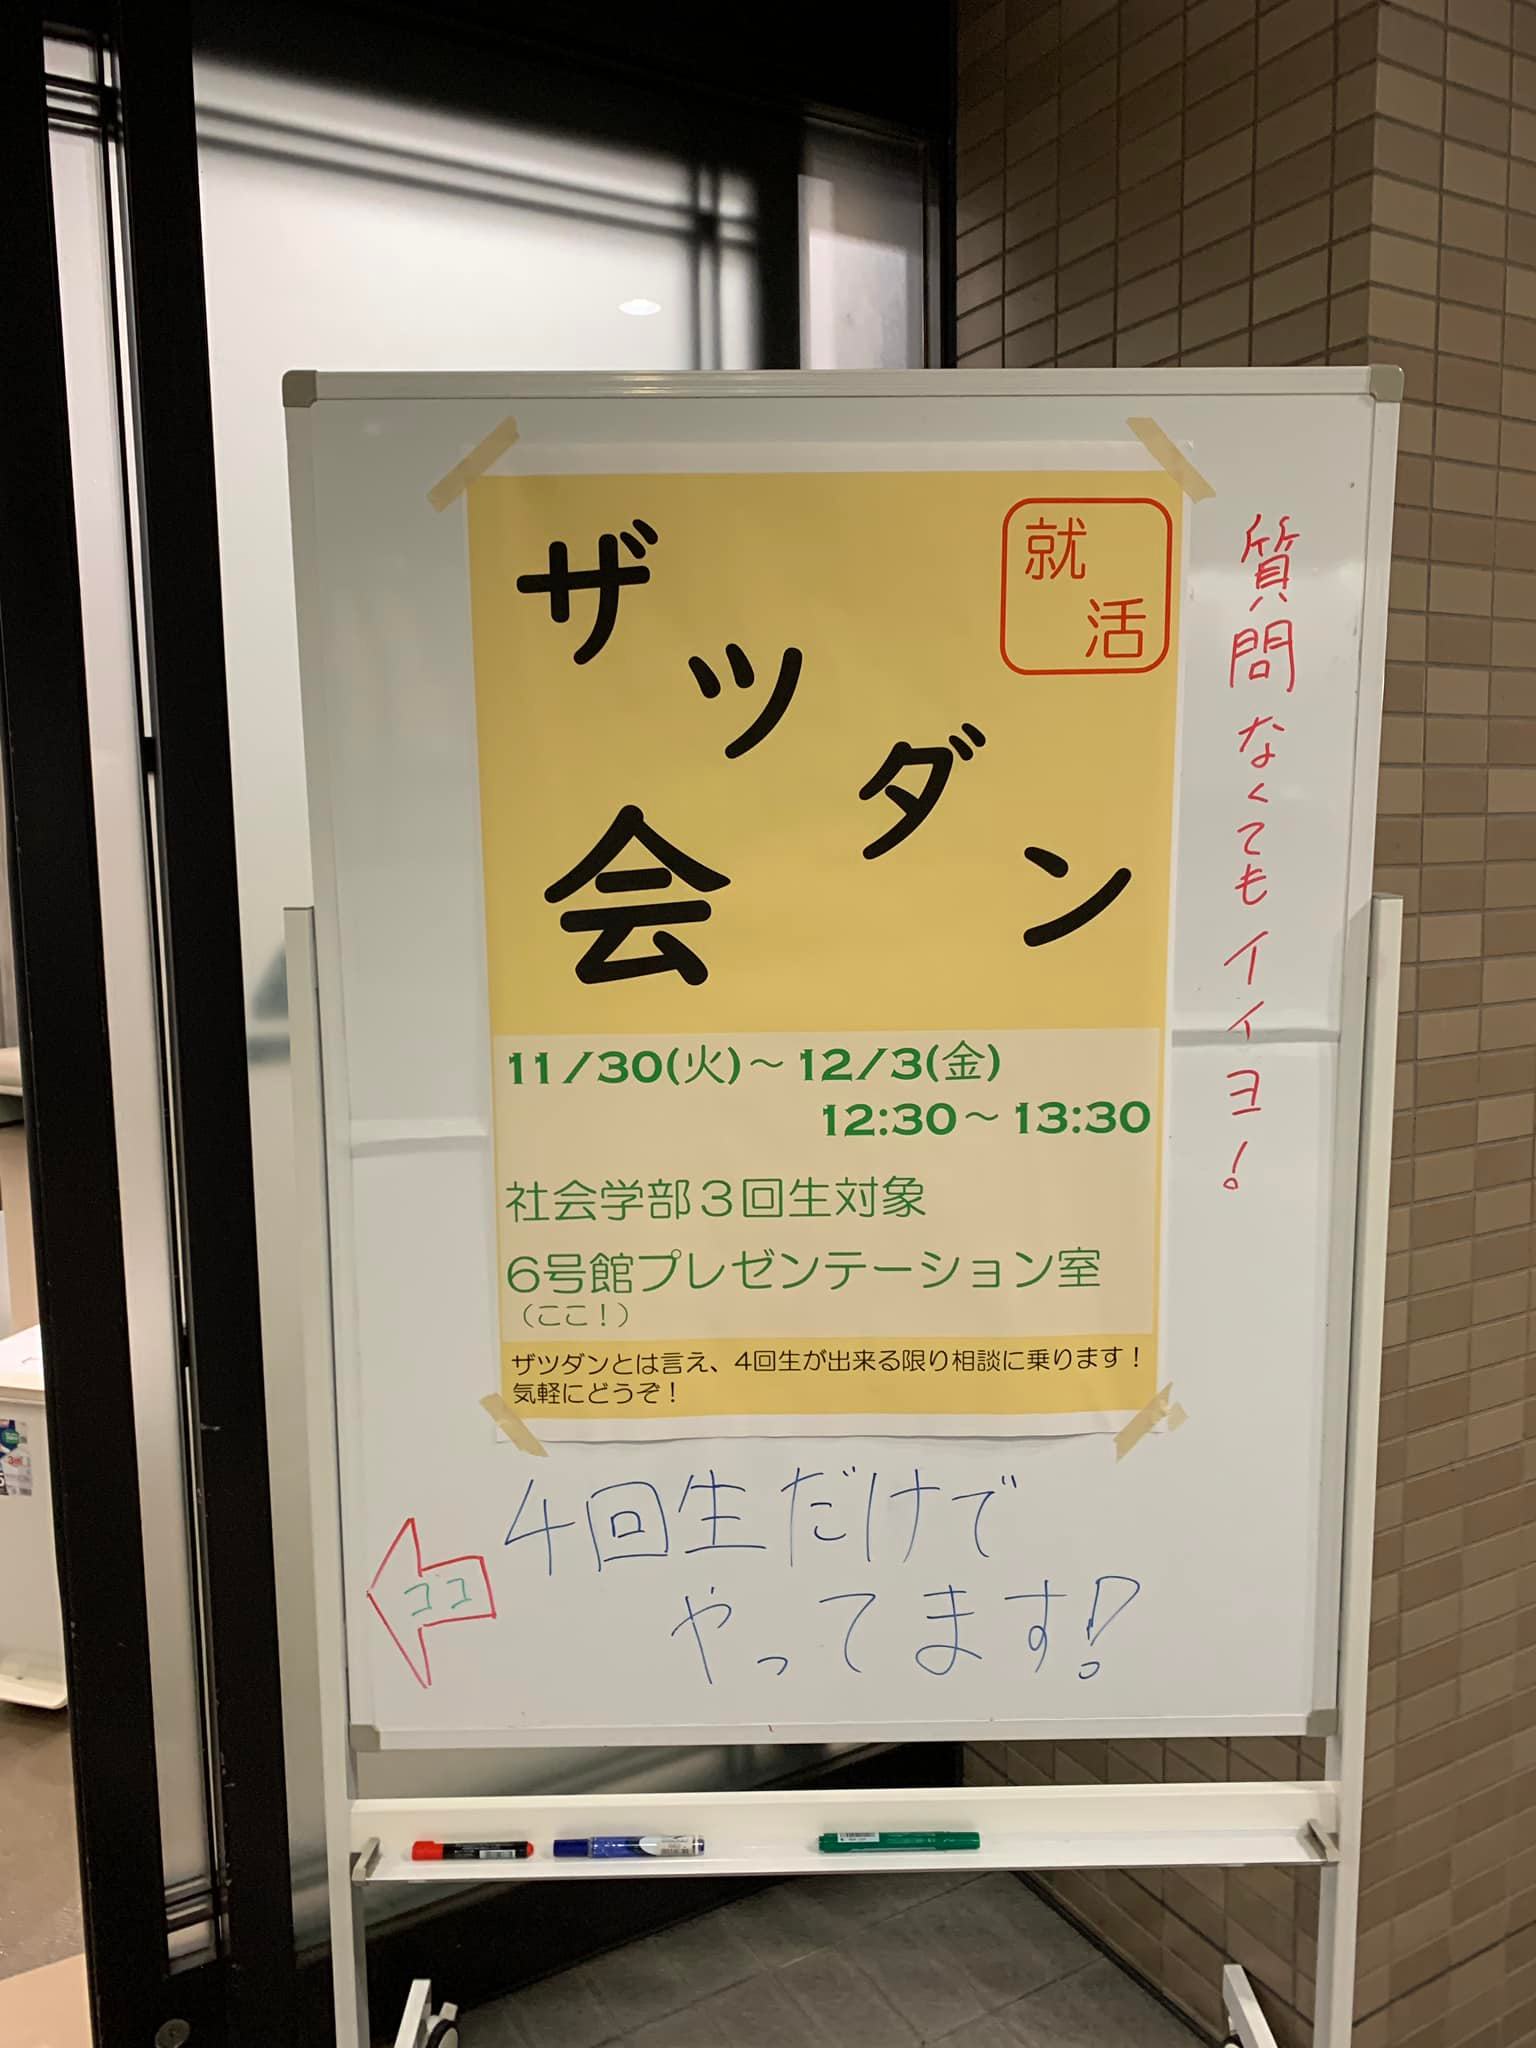 就活
ザツダン
会
11/30(火)～12/3(金)
12:30～13:30
社会学部３回生対象
6号館プレゼンテーション室
（ここ！）
ザツダンとは言え、4回生が出来る限り相談に乗ります！
気軽にどうぞ！
質問なくてもイイヨ！
4回生だけで
やってます！
ココ